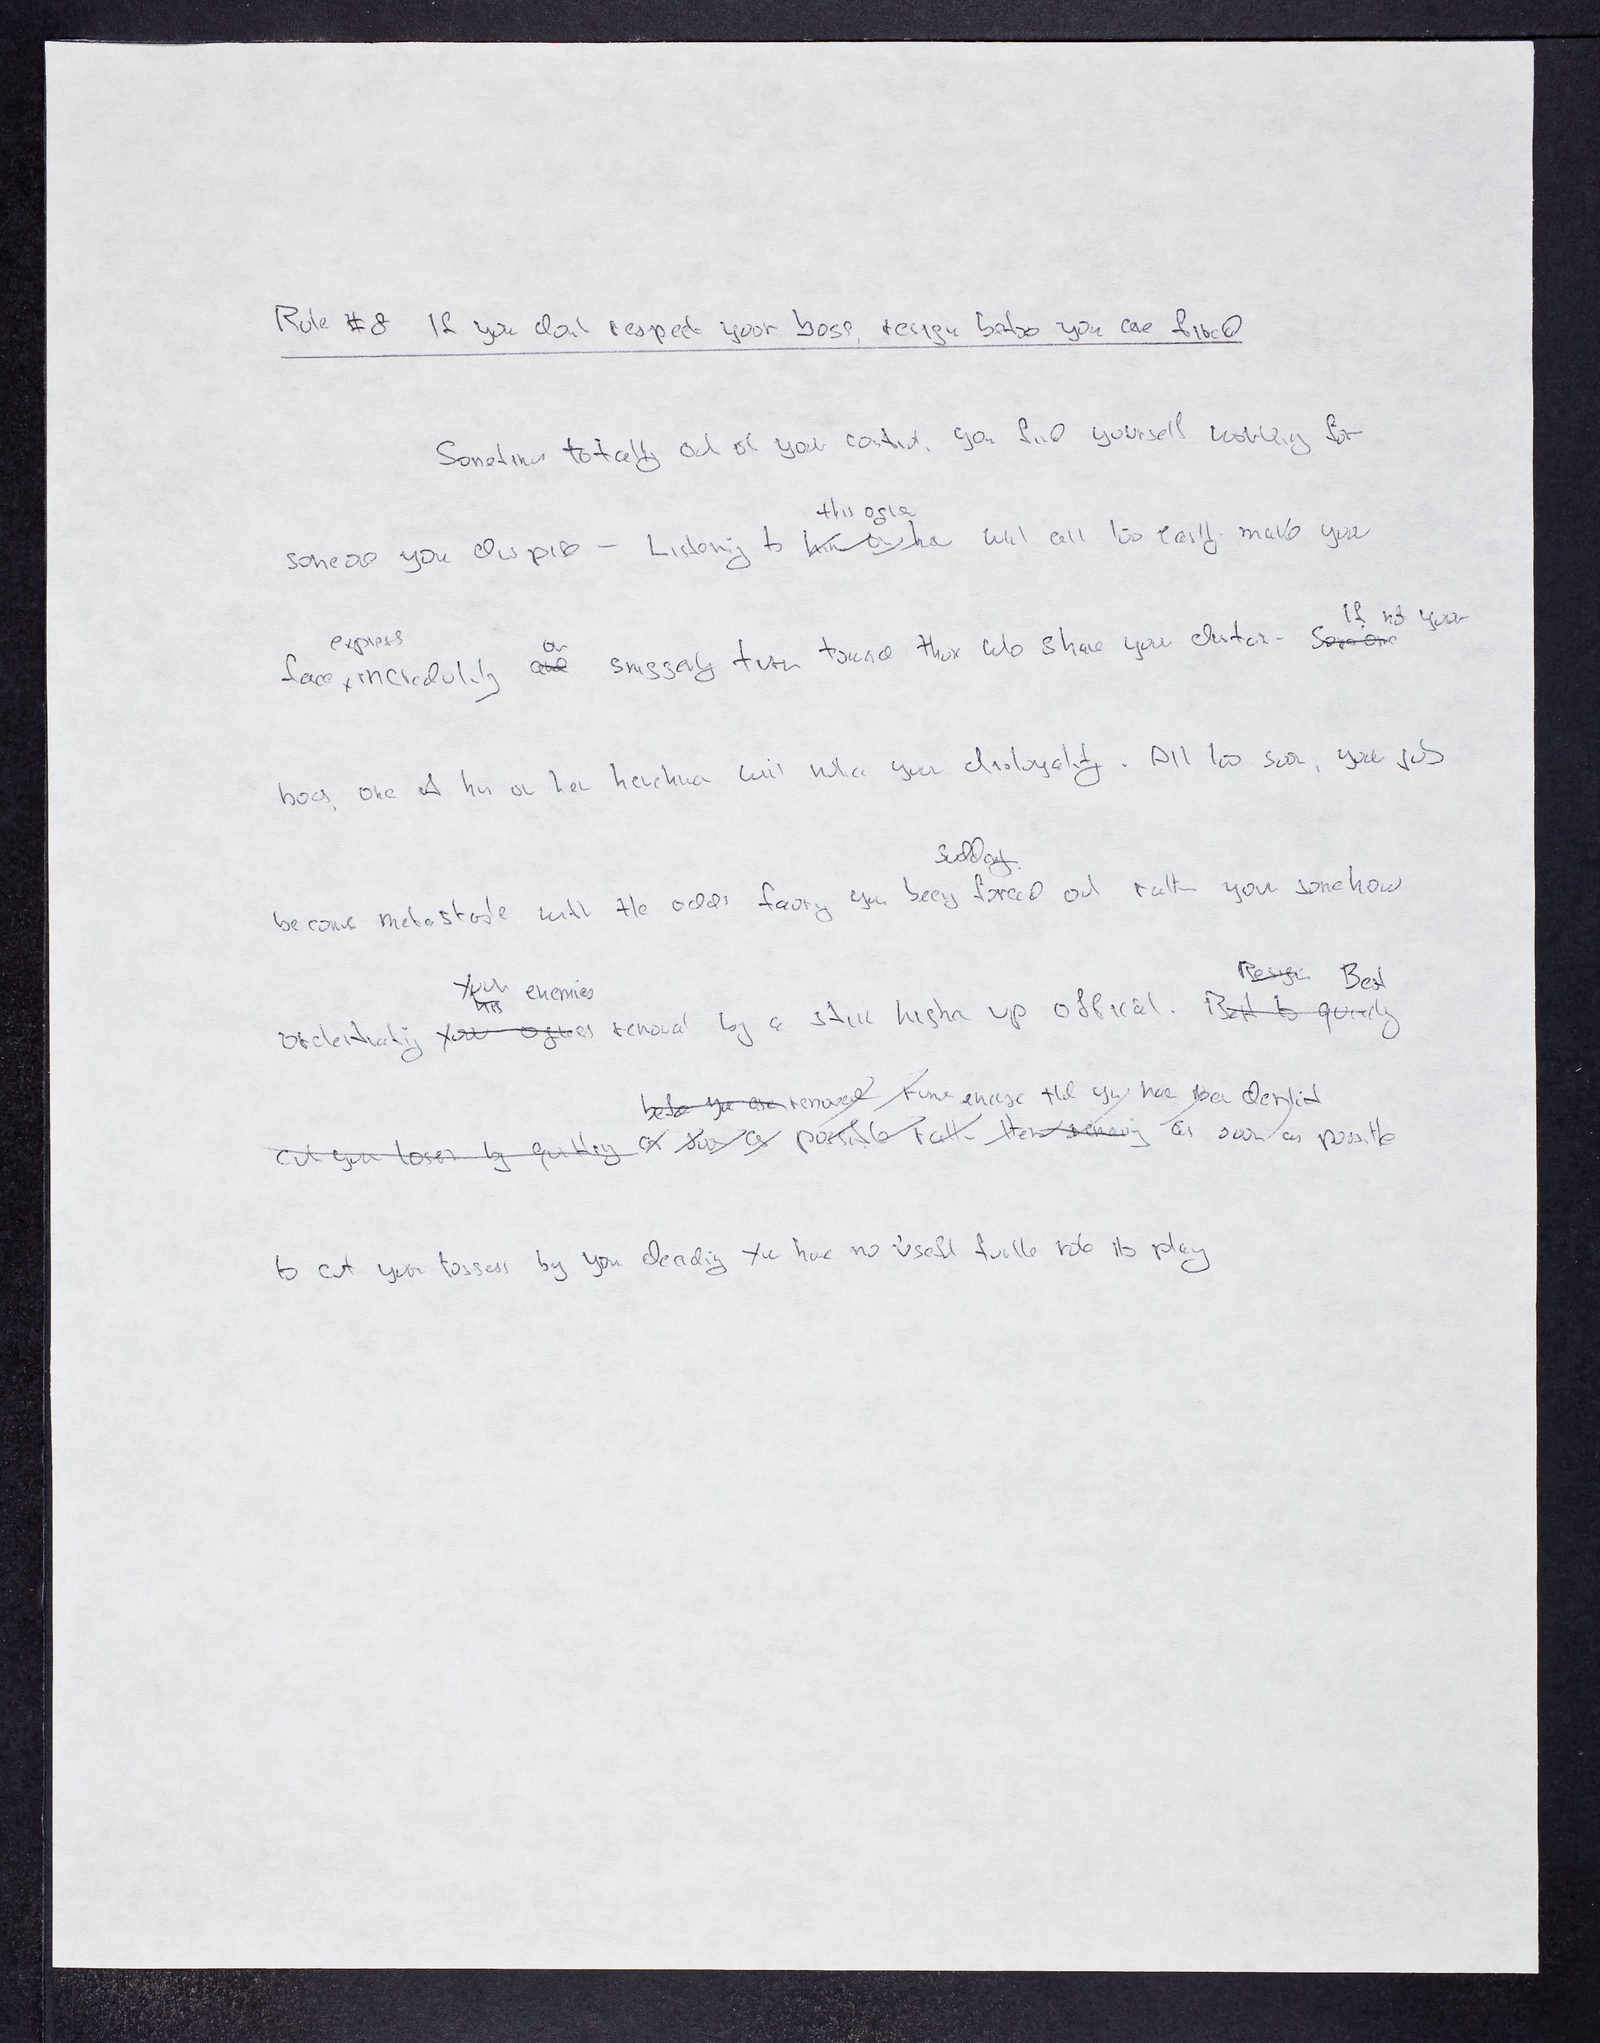 Rule #8 If you dont respect your boss, resign before you are fired
Sometimes totally out of your control, you find yourself working for
this ogre
someone you despise – Listening to him or her will all too easily make you
express or If not your
face, incredulity and smuggly turn toward those who share your distaste. Someone
boss, one of his or her henchmen will notice your disloyality. All too soon, your job
suddenly
becomes metastable with the odds favoring you being forced out rather your somehow
Your his enemies Resign Best
orchestrating your ogres removal by a still higher up official. Best to quickly
before you are removed have been
cut your losses by quitting as soon as possible rather then as soon as possible
to cut your lossess by you deciding you have no usefl role to play